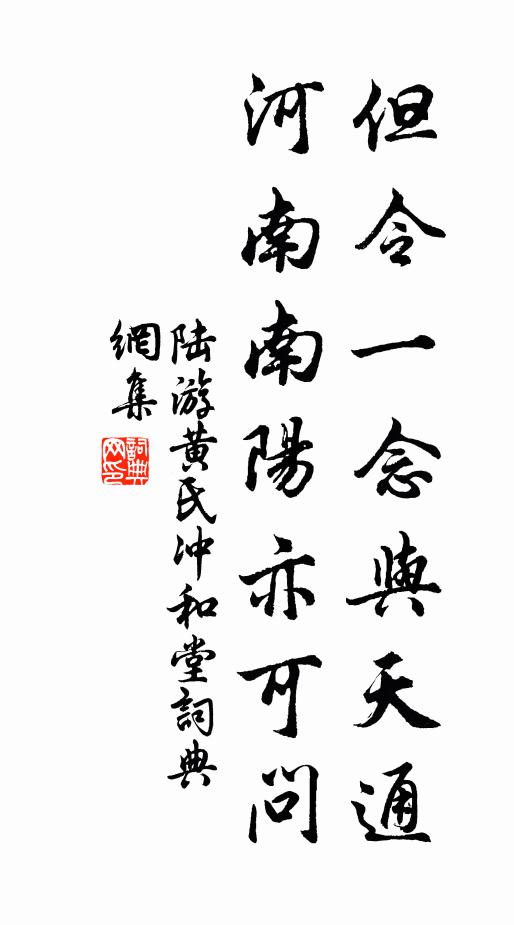 但令一念與天通
河南南陽亦可問
陆游黄氏冲和堂詞典
網集
詞典网印